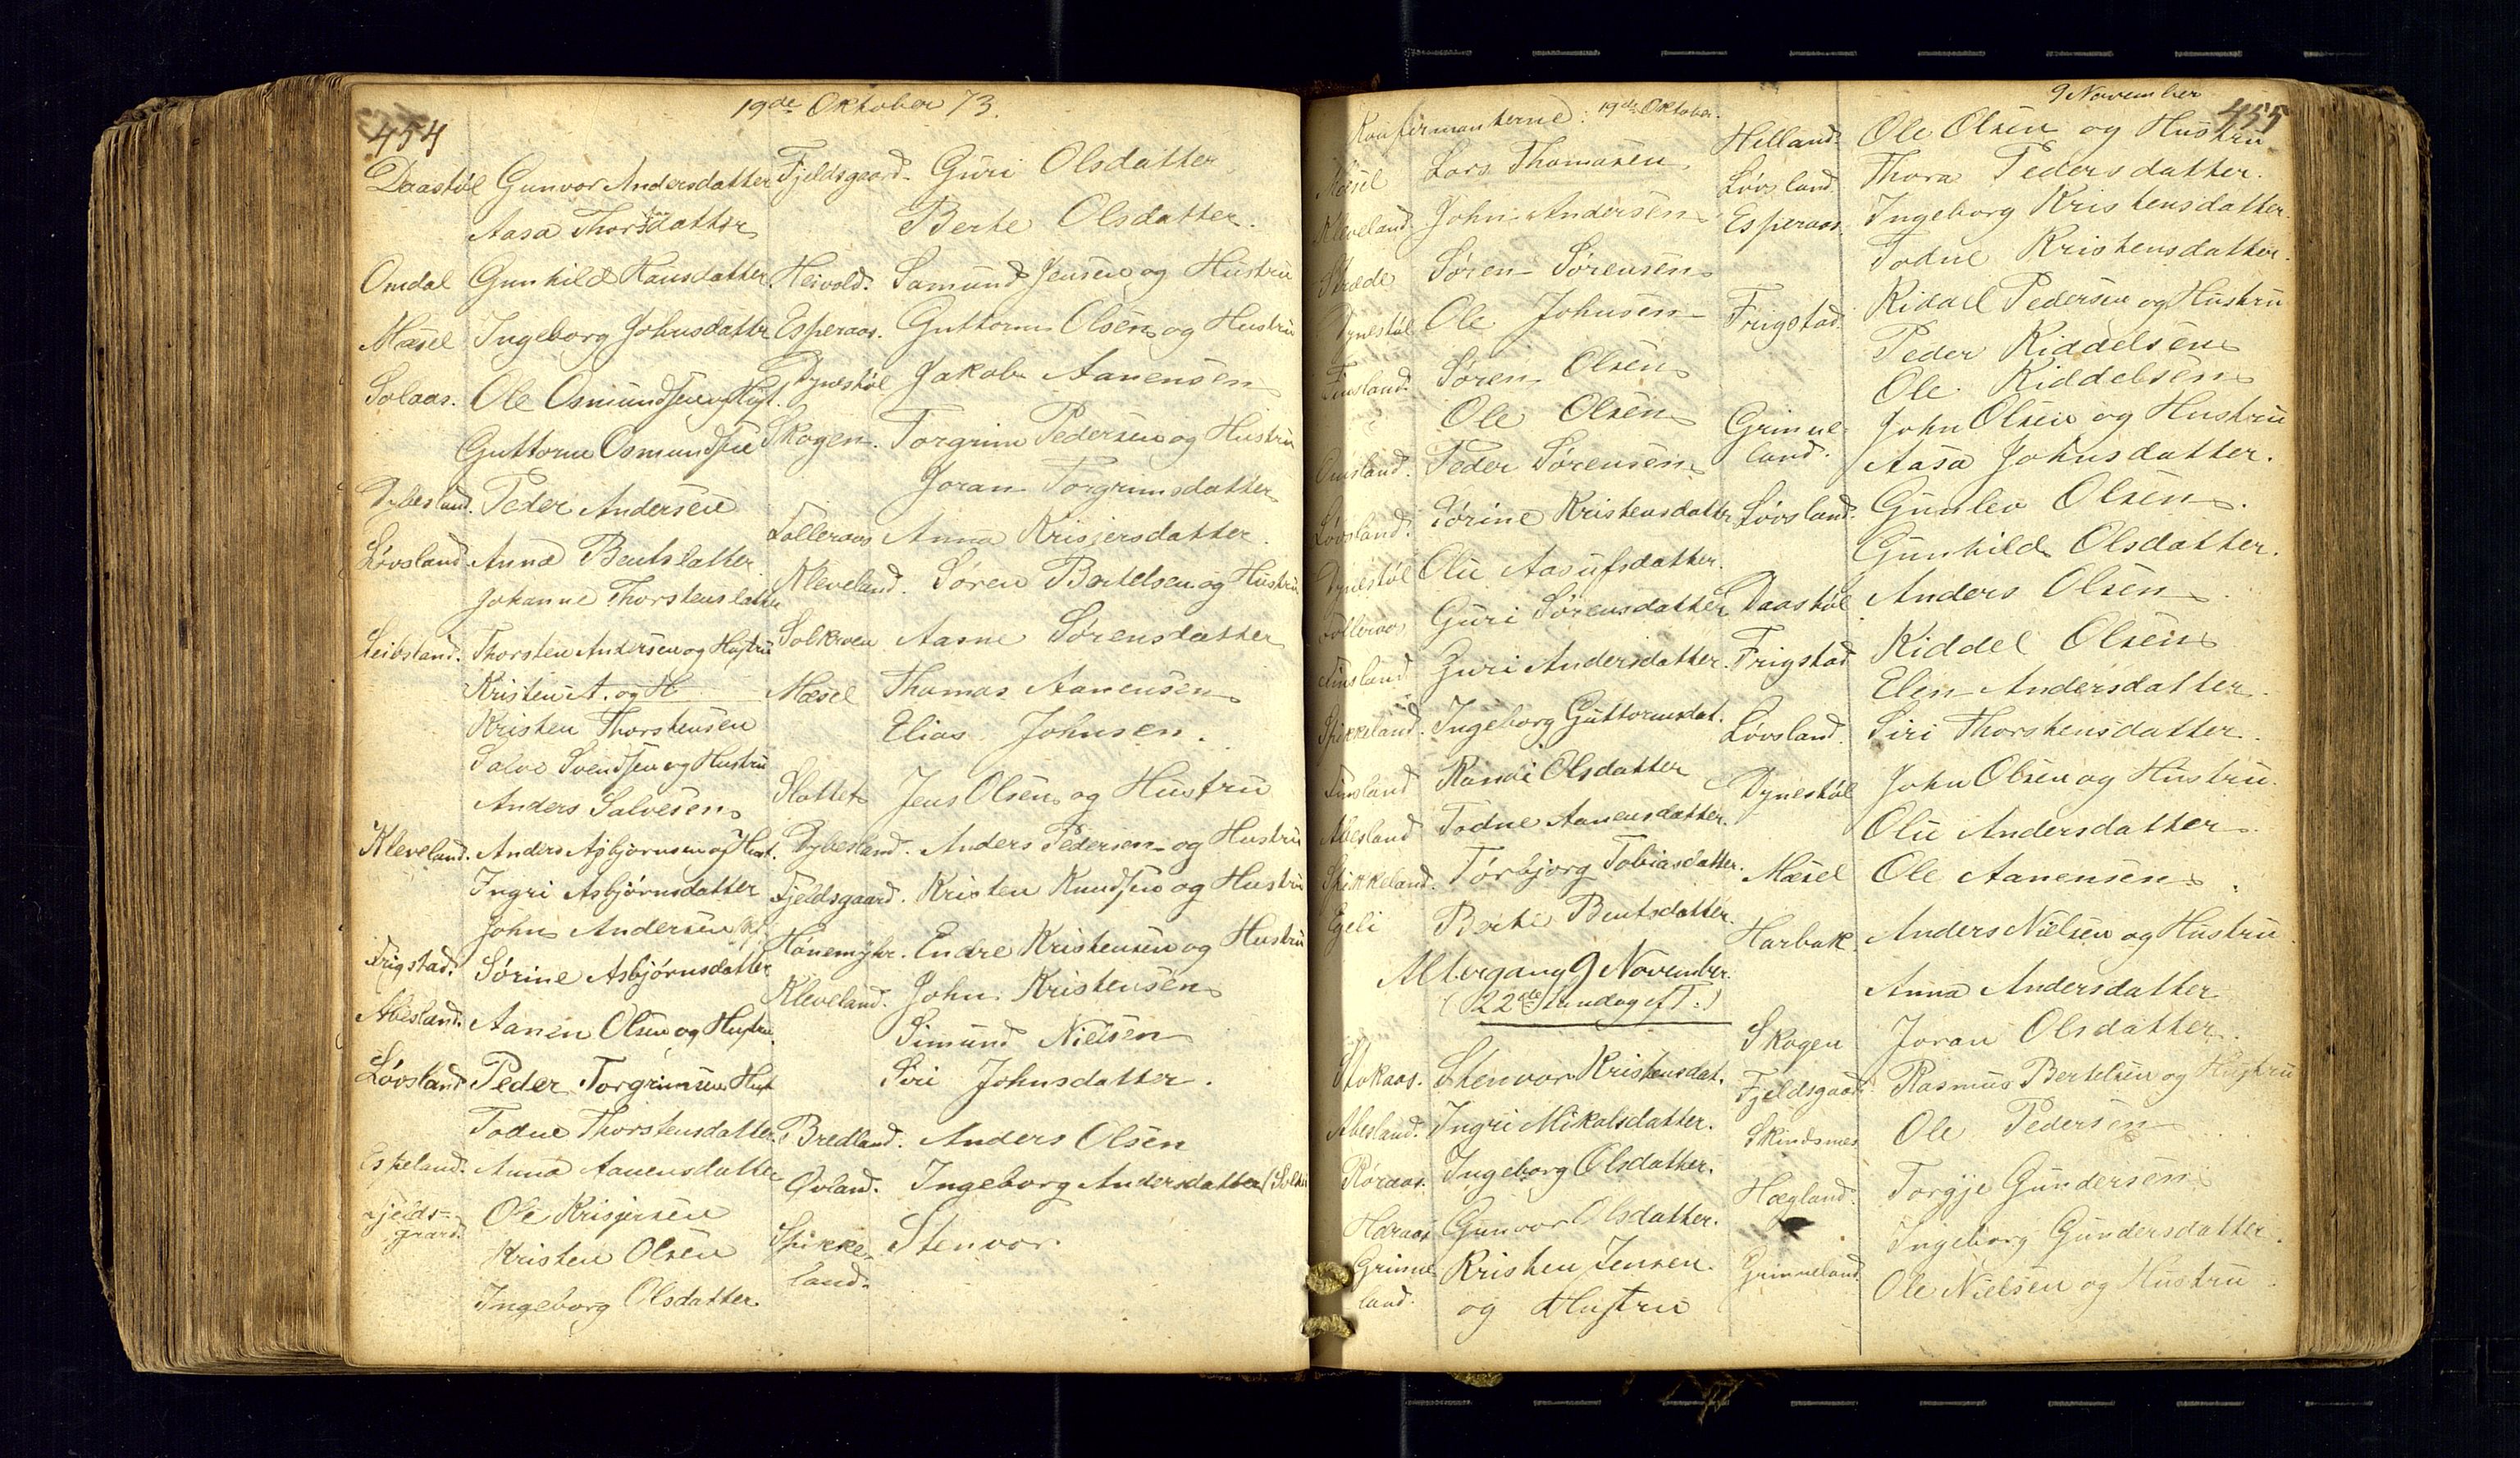 454
19de Oktober 73.
Daastøl Gunvor Andersdatter
Aasa Thorsdatter
Omdal Gunhild Hansdatter
Mæsel Ingeborg Johnsdatter
Solaas. Ole Osmundsen og Hust.
Guttorm Osmundsen
Dybesland. Peder Andersen
Løvsland. Anna Bentsdatter
Johanne Thorstensdatter
Leibsland. Thorsten Andersen og Hustru
Kristen A. og H
Kristen Thorstensen
Salve Svendsen og Hustru
Anders Salvesen
Kleveland. Anders Asbjørnsen og Hust.
Ingri Asbjørnsdatter
John Andersen
Frigstad. Sørine Asbjørnsdatter
Abesland. Aanen Olsen og Hustru.
Løvsland Peder Torgrimsen Hust
Todne Thorstensdatter.
Espeland. Anna Aanensdatter
Fjelds=
gaard. Ole Krisjersen
Kristen Olsen
Ingeborg Olsdatter
Fjeldsgaard. Guri Olsdatter
Berte Olsdatter.
Heivold. Samund Jensen og Hustru
Esperaas. Guttorm Olsen og Hustru
Dynestøl Jakob Aanensen
Skogen. Torgrim Pedersen og Hustru
Joran Torgrimsdatter
Tolleraas Anna Krisjersdatter.
Kleveland. Søren Bertelsen og Hustru
Solkroen Aasne Sørensdatter
Mæsel Thomas Aanensen
Elias Johnsen.
Slottet Jens Olsen og Hustru
Dybesland. Anders Pedersen og Hustru
Fjeldsgaard. Kristen Knudsen og Hustru
Hønemyhr. Endre Kristensen og Hustru
Kleveland. John Kristensen
Simund Nielsen
Siri Johnsdatter.
Bredland. Anders Olsen
Qvland. Ingeborg Andersdatter
Stikke-
land. Stenvor.
Konfirmanterne: 19de Oktober.
Mæsel Lars Thomasen
Kleveland John Andersen
Stræde Søren Sørensen
Dynestøl Ole Johnsen
Finsland. Søren Olsen
Ole Olsen
Omsland. Peder Sørensen
Løvsland. Tørine Kristensdatter
Dynestøl Olu Aasufsdatter.
Tolleraas Guri Sørensdatter
Finsland Guri Andersdatter.
Stikkeland. Ingeborg Guttormsdat.
Finsland Randi Olsdatter
Abesland Todne Aanensdatter.
Stikkeland. Torbjorg Tobiasdatter.
Egeli Berte Bentsdatter.
Altergang 9 November.
(22de Søndag ef T:)
Stokaas. Stenvor Kristensdat.
Abesland. Ingri Mikalsdatter.
Røraas. Ingeborg Olsdatter.
Haraas Gunvor Olsdatter.
Grimne
land. Kristen Jensen.
og Hustru
9 November
455
Helland. Ole Olsen og Hustru
Løvsland. Thora Pedersdatter.
Esperaas. Ingeborg Kristensdatter.
Todne Kristensdatter.
Frigstad. Kiddel Pedersen og Hustru
Peder Kiddelsen
Ole Kiddelsen
Grimne-
land. John Olsen og Hustru
Aasa Johnsdatter.
Løvsland. Gunlev Olsen.
Gunhild Olsdatter.
Daastøl Anders Olsen
Frigstad Kiddel Olsen
Elen Andersdatter.
Løvsland. Siri Thorstensdatter.
Dynestøl John Olsen og Hustru.
Olu Andersdatter.
Mæsel Ole Aanensen.
Harbak. Anders Nielsen og Hustru
Anna Andersdatter
Skogen Joran Olsdatter.
Fjeldsgaard Rasmus Bertelsen og Hustru
Skindsmes Ole Pedersen
Hægland. Torgje Gundersen
Ingeborg Gundersdatter.
Grimneland. Ole Nielsen og Hustru